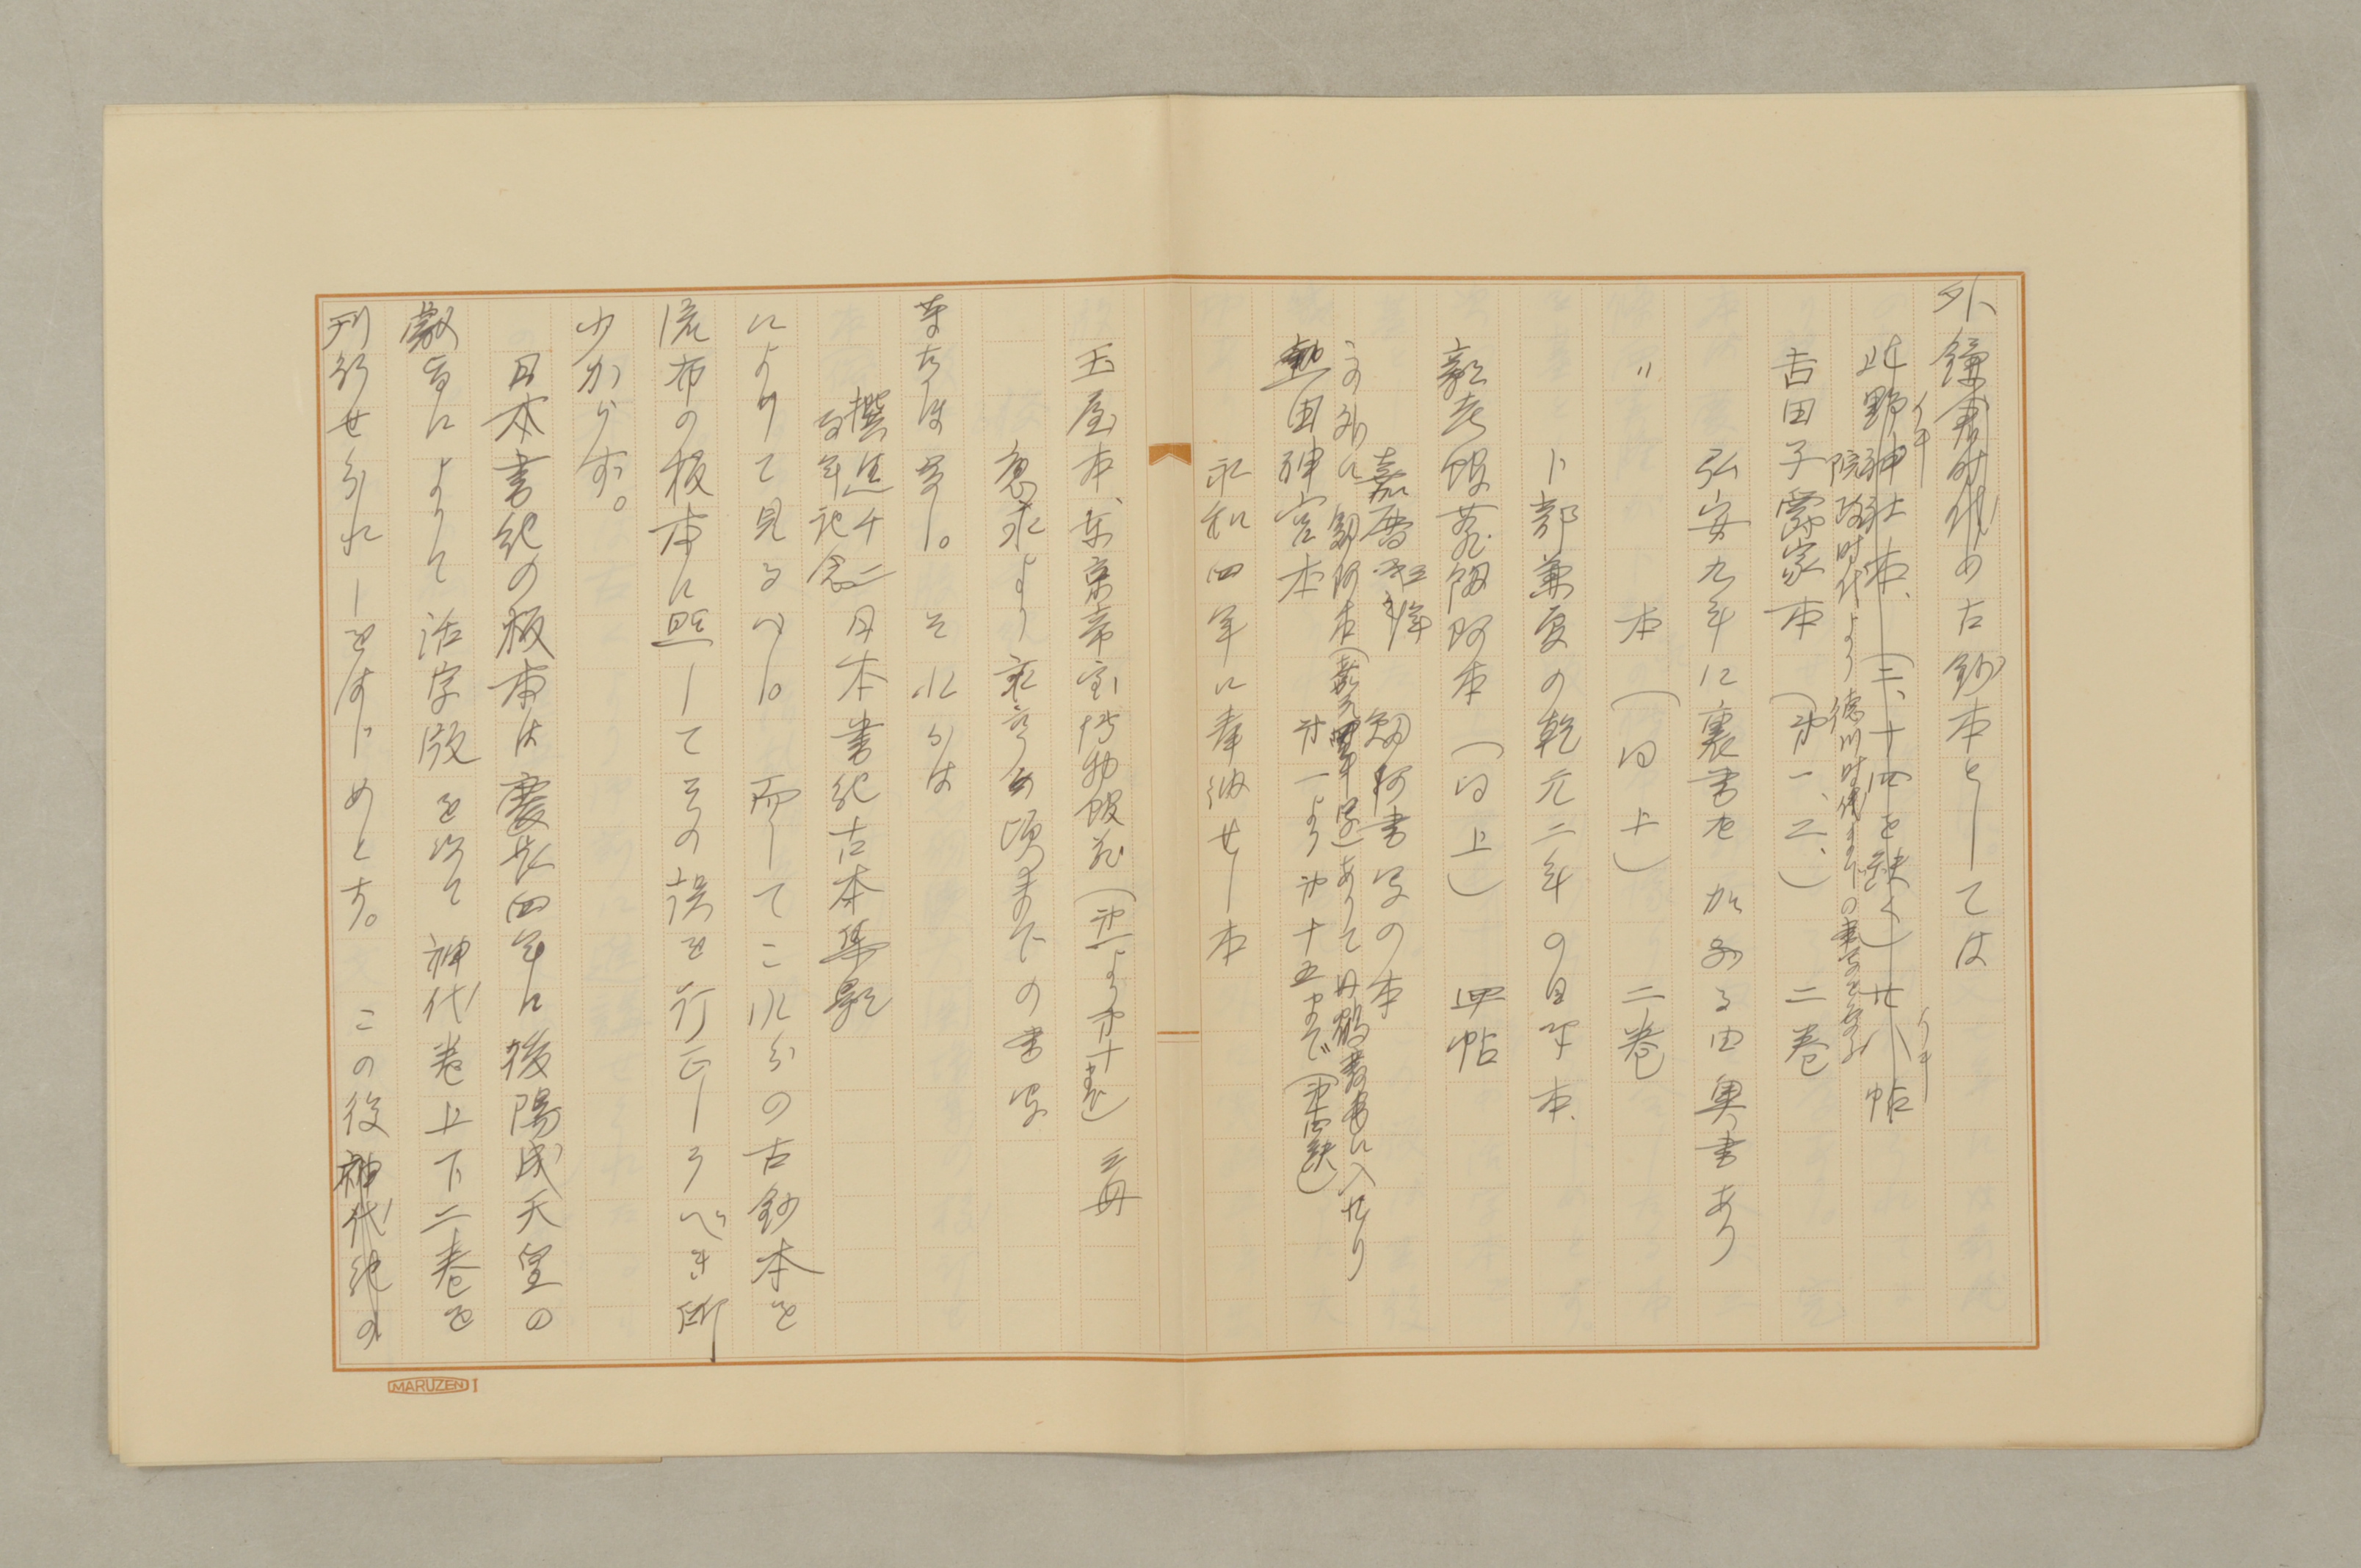 外鎌倉時代の古鈔本としては
イキ
北野神社本、(三、十四を缺く)廿八帖
イキ
院政時代より徳川時代までの書写を含み
吉田子爵家本 (第一、二、) 二巻
弘安九年に裏書を加ふる由奥書あり
〃 本 (同上) 二巻
卜部兼夏の乾元二年の自筆本、
彰考館蔵 阿本 (同上) 四帖
嘉暦 年 釼阿書写の本
この外に 釼阿本(嘉元四年写)ありて 丹鶴叢書に入れり
熱田神宮本 第一より第十五まで(第 缺)
永和四年に奉納せし本
玉屋本、東京帝室博物館蔵(第三より第十まで)三冊
應永より 永享の頃までの書写
等なほ多し。それらは
撰進千二
百年記念 日本書紀古本集影
によりて見るべし。而してこれらの古鈔本を
流布の板本に照してその誤を訂正しうべき所
少からず。
日本書紀の板本は慶長四年に後陽成天皇の
敕旨によりて活字版を以て神代巻上下二巻を
刊行せられしをはじめとす。この後神代紀の
MARUZEN I